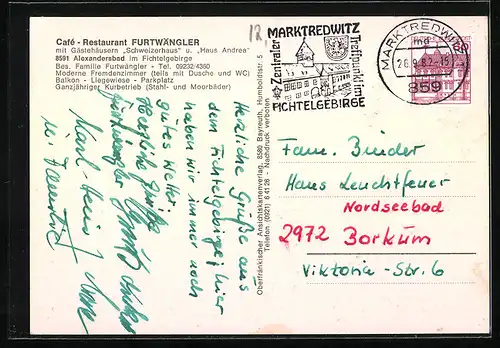 Café - Restaurant FURTWÄNGLER
mit Gästehäusern „Schweizerhaus" u. „Haus Andrea"
8591 Alexandersbad im Fichtelgebirge
Bes. Familie Furtwängler - Tel. 09232/4350
Moderne Fremdenzimmer (teils mit Dusche und WC)
Balkon - Liegewiese - Parkplatz
Ganzjähriger Kurbetrieb (Stahl- und Moorbäder)
12
MARKTREDWITZ
Zentraler
Treffpunkt im
FICHTELGEBIRGE
MARKTREDWITZ
md
26.9.82-15
859
60
Herzliche Grüße aus
dem Fichtelgebirge, hier
haben wir immer noch
gutes Wetter
Herzliche Grüße
Karl-Heinz
u. Familie
Oberfränkischer Ansichtskartenverlag, 8580 Bayreuth, Humboldtstr. 5
Telefon (0921) 6 41 26 - Nachdruck verboten
Fam. Binder
Haus Leuchtfeuer
Nordseebad
2972 Borkum
Viktoria-Str. 6